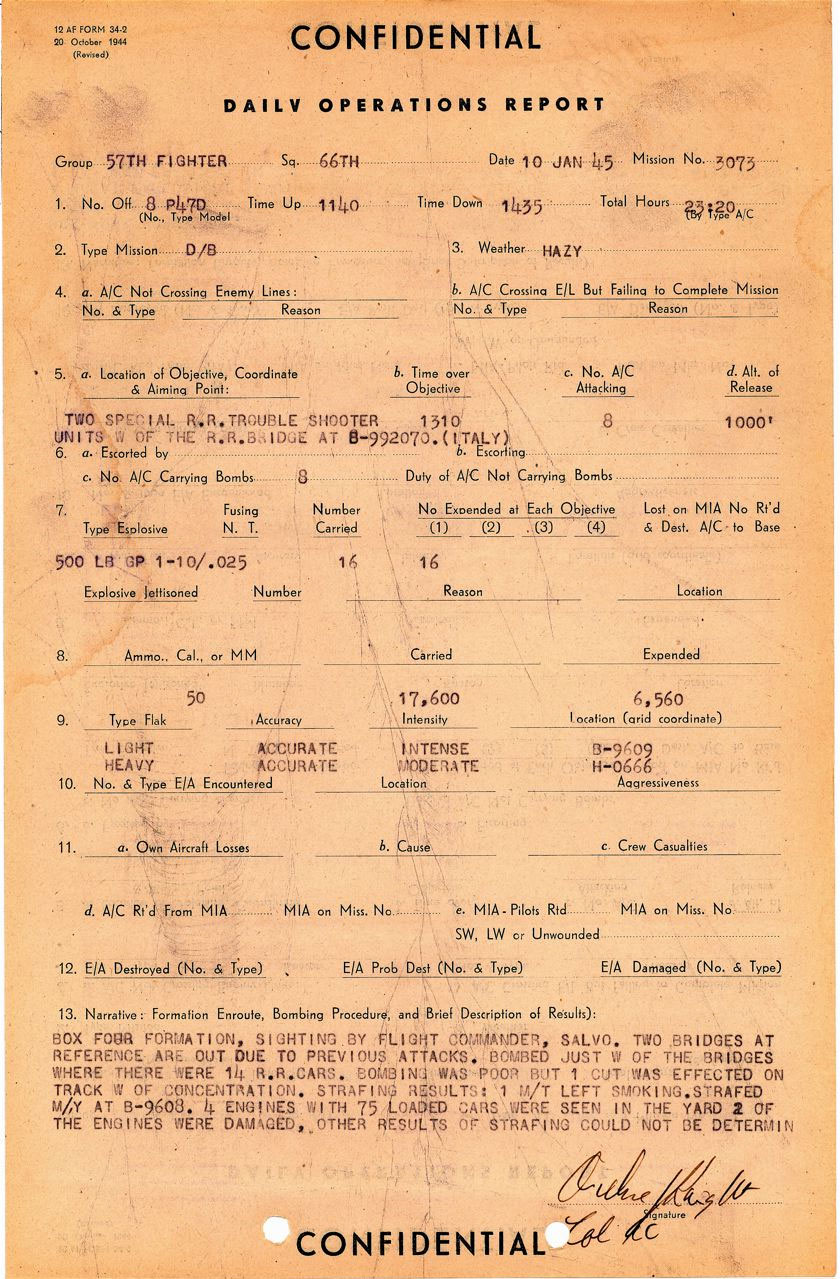 12 AF FORM 34-2
20 October 1944
(Revised)
CONFIDENTIAL
DAILY OPERATIONS REPORT
Group 57TH FIGHTER Sq. 66TH Date 10 JAN 45 Mission No. 3073
1. No. Off 8 P47D Time Up 1140 Time Down 1435 Total Hours 23:20
(No., Type Model (By Type A/C
2. Type Mission D/B 3. Weather HAZY
4. a. A/C Not Crossing Enemy Lines: b. A/C Crossing E/L But Failing to Complete Mission
No. & Type Reason No. & Type Reason
5. a. Location of Objective, Coordinate b. Time over c. No. A/C d. Alt. of
& Aiming Point: Objective Attacking Release
TWO SPECIAL R.R.TROUBLE SHOOTER 1310 8 1000'
UNITS W OF THE R.R.BRIDGE AT B-992070.(ITALY)
6. a. Escorted by b. Escorting
c. No. A/C Carrying Bombs 8 Duty of A/C Not Carrying Bombs
7. Fusing Number No Expended at Each Objective Lost on MIA No Rt'd
Type Explosive N. T. Carried (1) (2) (3) (4) & Dest. A/C to Base
500 LB GP 1-10/.025 16 16
Explosive Jettisoned Number Reason Location
8. Ammo., Cal., or MM Carried Expended
50 17,600 6,560
9. Type Flak Accuracy Intensity Location (grid coordinate)
LIGHT ACCURATE INTENSE B-9609
HEAVY ACCURATE MODERATE H-0666
10. No. & Type E/A Encountered Location Aggressiveness
11. a. Own Aircraft Losses b. Cause c. Crew Casualties
d. A/C Rt'd From MIA MIA on Miss. No. e. MIA-Pilots Rtd MIA on Miss. No
SW, LW or Unwounded
12. E/A Destroyed (No. & Type) E/A Prob Dest (No. & Type) E/A Damaged (No. & Type)
13. Narrative: Formation Enroute, Bombing Procedure, and Brief Description of Results):
BOX FOUR FORMATION, SIGHTING BY FLIGHT COMMANDER, SALVO. TWO BRIDGES AT
REFERENCE ARE OUT DUE TO PREVIOUS ATTACKS. BOMBED JUST W OF THE BRIDGES
WHERE THERE WERE 14 R.R.CARS. BOMBING WAS POOR BUT 1 CUT WAS EFFECTED ON
TRACK W OF CONCENTRATION. STRAFING RESULTS: 1 M/T LEFT SMOKING.STRAFED
M/Y AT B-9608. 4 ENGINES WITH 75 LOADED CARS WERE SEEN IN THE YARD 2 OF
THE ENGINES WERE DAMAGED, OTHER RESULTS OF STRAFING COULD NOT BE DETERMIN
Archie Knight
Signature
Col AC
CONFIDENTIAL